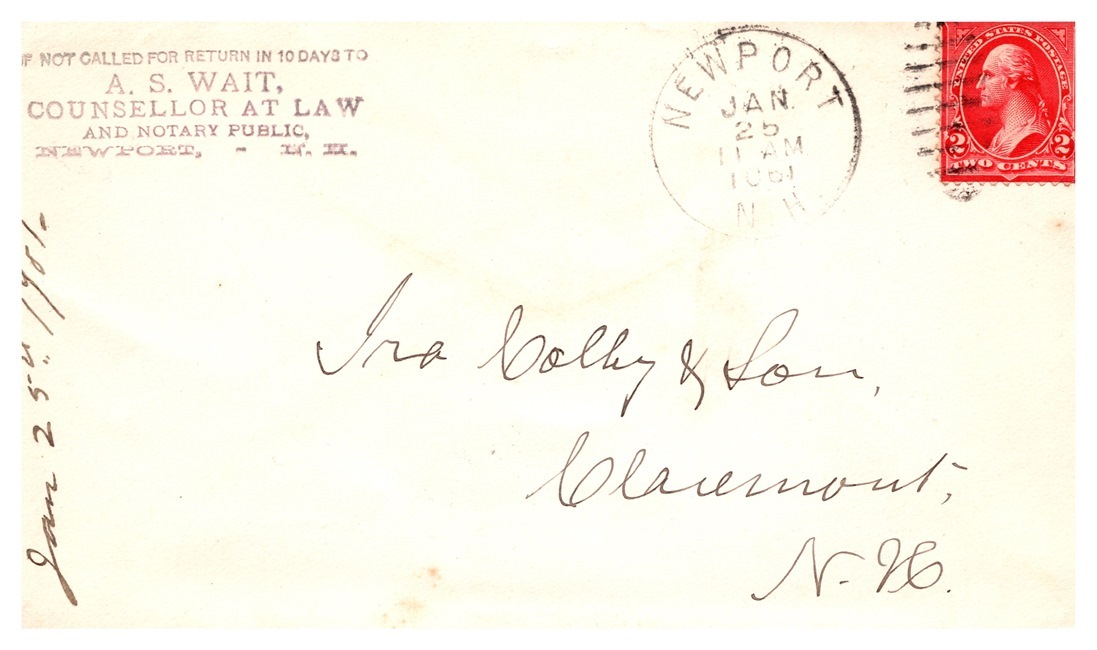 IF NOT CALLED FOR RETURN IN 10 DAYS TO
A. S. WAIT,
COUNSELLOR AT LAW
AND NOTARY PUBLIC,
NEWPORT, - N. H.
NEWPORT
JAN.
25
11 AM
1901
N. H.
UNITED STATES POSTAGE
2 2
TWO CENTS
Jan 25th 1901.
Ira Colby & Son,
Claremont,
N. H.